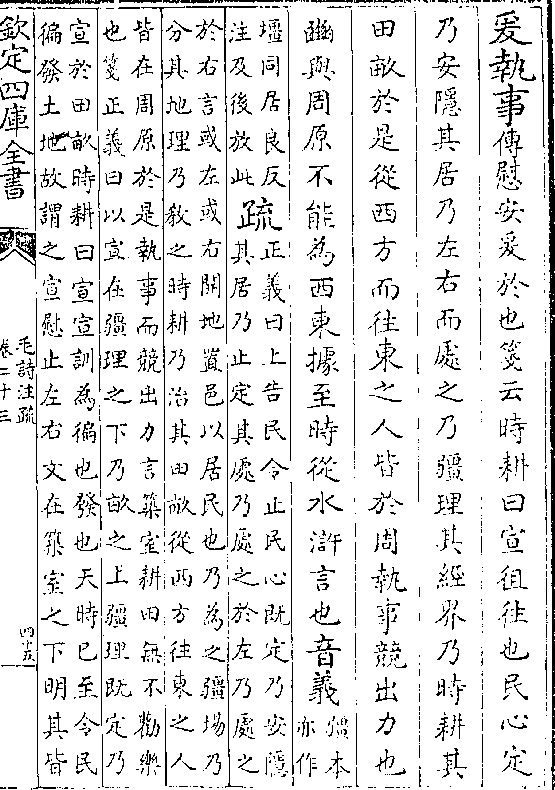 爰執事傳慰安爰於也箋云時耕曰宣徂徃也民心定
乃安隱其居乃左右而處之乃疆理其經界乃時耕其
田畝於是從西方而徃東之人皆於周執事競出力也
豳與周原不能為西東據至時從水滸言也音義疆本
亦作
壃同居良反
注及後放此
疏正義曰上告民令止民心既定乃安隱
其居乃止定其處乃處之於左乃處之
於右言或左或右開地置邑以居民也乃為之疆塲乃
分其地理乃教之時耕乃治其田畝從西方往東之人
皆在周原於是執事而競出力言築室耕田無不勸樂
也箋正義曰以宣在疆理之下乃畝之上疆理既定乃
宣於田畝時耕曰宣宣訓為徧也發也天時已至令民
徧發土地故謂之宣慰止左右文在築室之下明其皆
欽定四庫全書
毛詩注疏
卷二十三
四十五